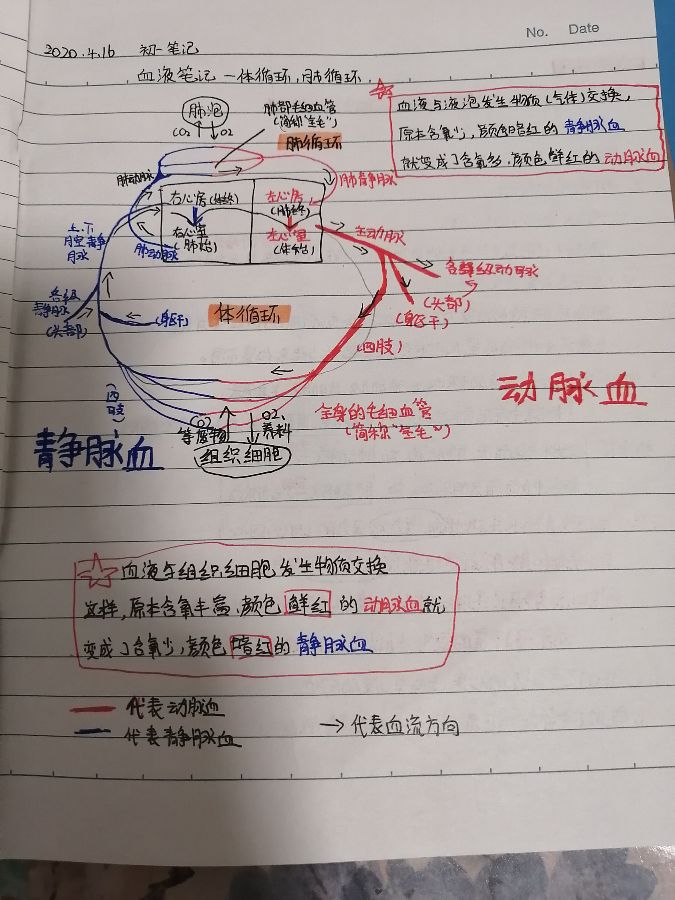 No. Date
2020.4.16 初一笔记
血液笔记—体循环,肺循环.
肺泡
CO₂ O2
肺部毛细血管
(简称"毛毛")
肺循环
血液与液泡发生物质(气体)交换,
原本含氧少,颜色暗红的静脉血
就变成了含氧多,颜色鲜红的动脉血
肺动脉
肺静脉
右心房(体终)
左心房
(肺终)
右心室
(肺始)
左心室
(体始)
肺动脉
主动脉
上、下
腔静
脉
各级
静脉
(头部)
各级动脉
(头部)
(躯干)
(躯干)
体循环
(四肢)
(四肢)
动脉血
静脉血
全身的毛细血管
(简称"毛毛")
CO2
等废物
O2、
养料
组织细胞
血液与组织细胞发生物质交换
这样,原本含氧丰富,颜色鲜红的动脉血就
变成了含氧少,颜色暗红的静脉血
代表动脉血
代表静脉血
→代表血流方向